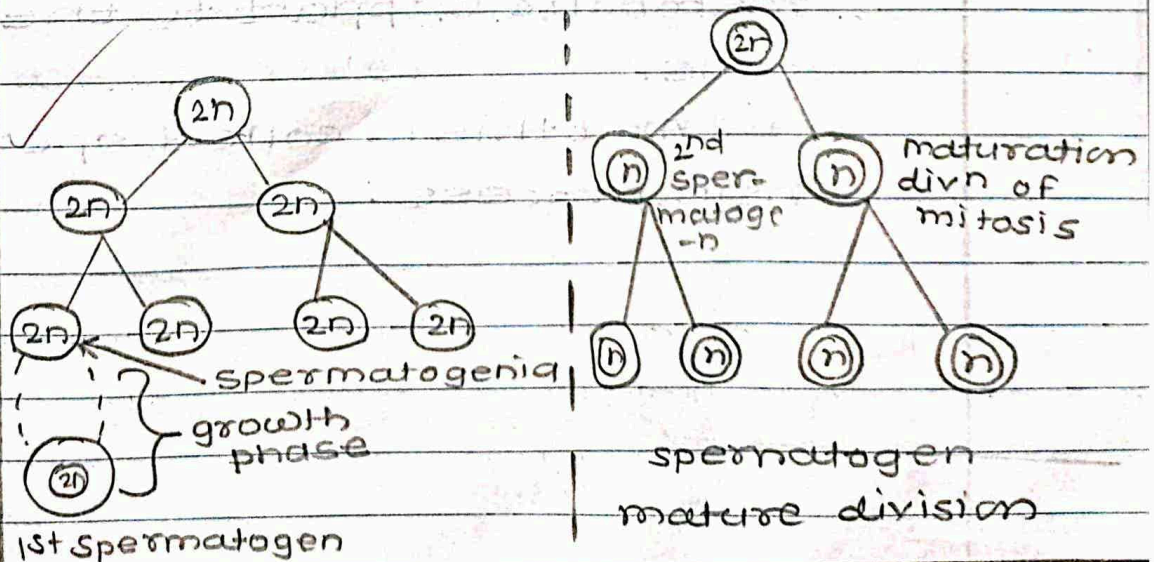 2n
2n 2n
2n 2n 2n 2n
spermatogenia
growth
phase
2n
1st spermatogen
2n
n 2nd
sper-
matoge
-n
n maturation
divn of
mitosis
n n n n
spernatogen
mature division